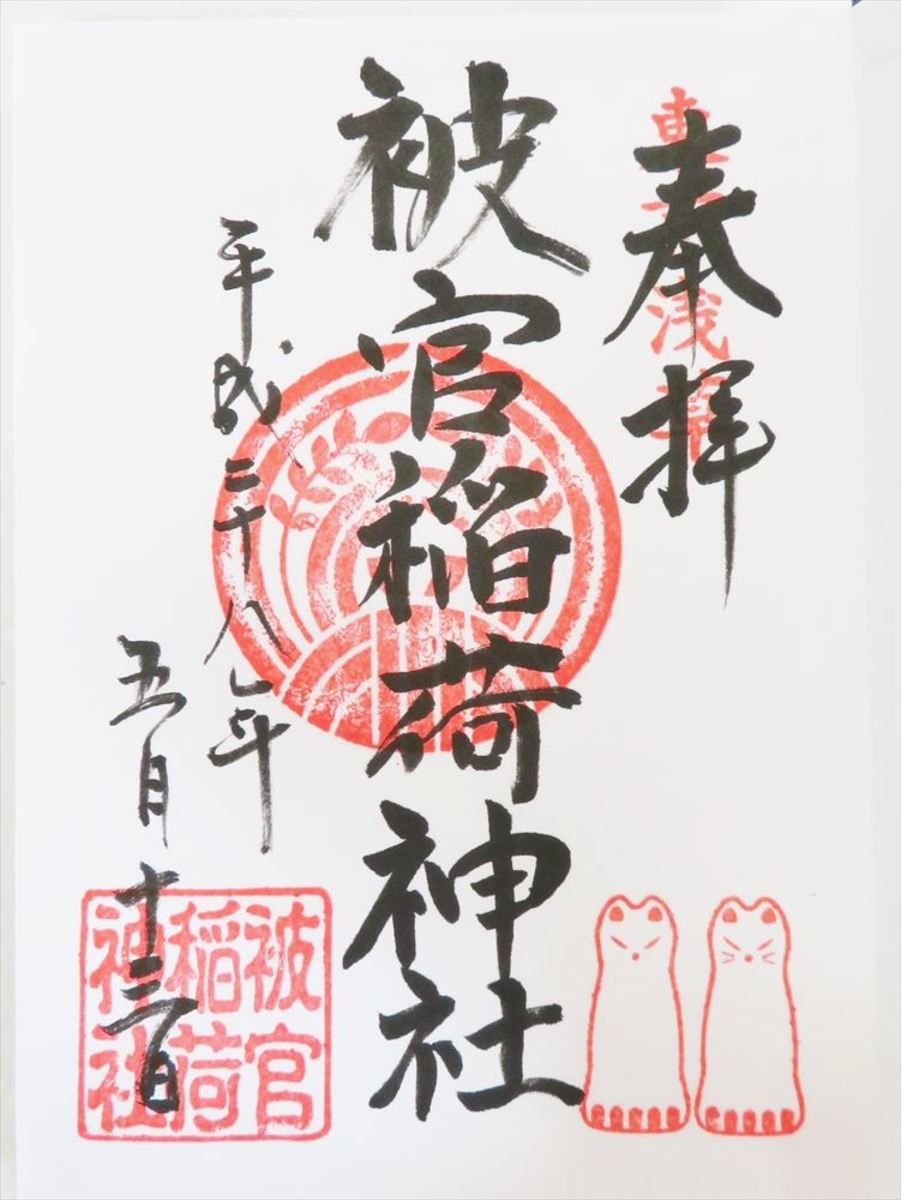 奉拝
東京浅草
被官稲荷神社
平成二十八年
五月十三日
被官
稲荷
神社